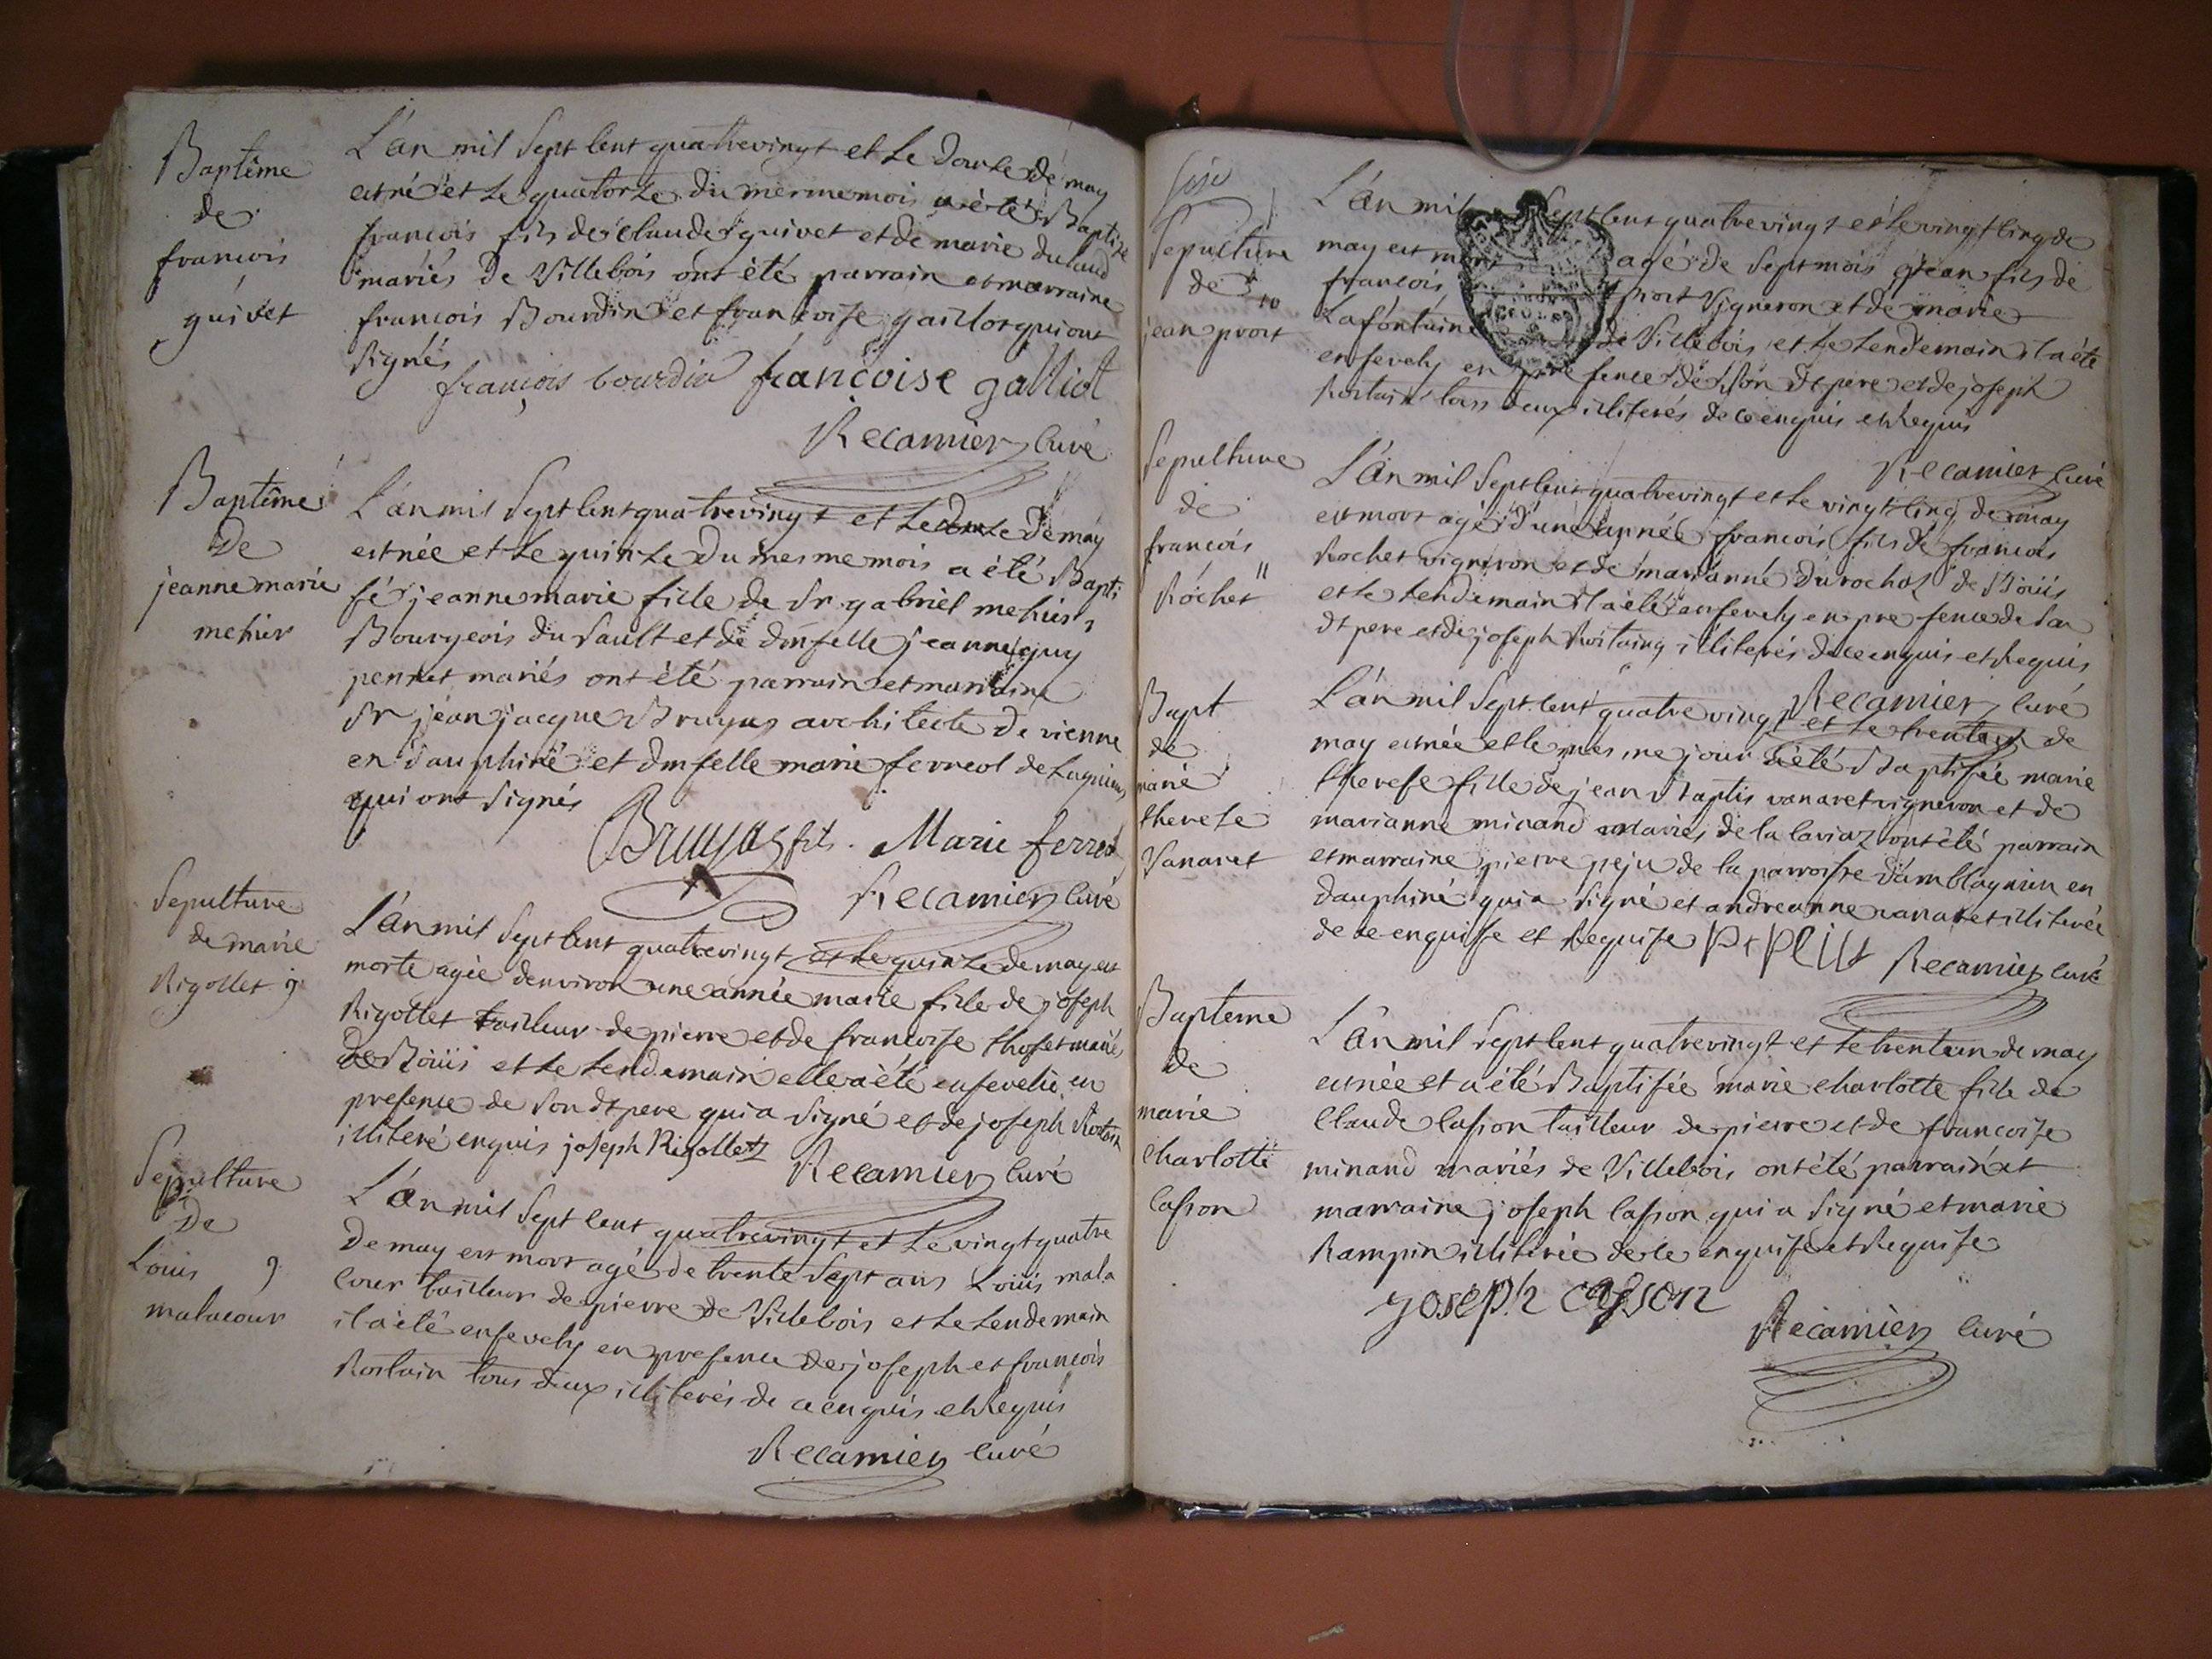 Baptême
de
francois
guivet
L'an mil sept cent quatrevingt et le douze de may
est né et le quatorze du mesme mois a été Baptisé
francois fils de claude guivet et de marie duland
mariés de Villebois ont été parrain et marraine
francois Bourdin et francoise gailiot qui ont
signés
françois bourdin francoise galliot
Recamier curé
Baptême
de
jeanne marie
mehier
L'an mil sept cent quatrevingt et le douze de may
est née et le quinze du mesme mois a été Bapti
sé jeanne marie fille de Sr gabriel mehier
Bourgeois du Sault et de dmselle jeanne guy
pennet mariés ont été parrain et marraine
Sr jean jacque Bruyas architecte de vienne
en dauphiné et dmselle marie ferreol de Lagnieu
qui ont signés
Bruyas fils. Marie ferreol
Recamier curé
Sepulture
de marie
Rigollet 9
L'an mil sept cent quatrevingt et le quinze de may est
morte agée denviron une année marie fille de joseph
Rigollet tailleur de pierre et de francoise thoset mariés
de Boüis et le lendemain elle a été ensevelie en
presence de son dt pere qui a signé et de joseph Rostain
illiteré enquis joseph Rigollet
Recamier curé
Sepulture
De
Louis 9
malacour
L'an mil sept cent quatrevingt et le vingt quatre
de may est mort agé de trente sept ans Loüis mala
cour tailleur de pierre de Villebois et le lendemain
il a été ensevely en presence de joseph et francois
Rostain tous deux illiterés de ce enquis et Requis
Recamier curé
Sepulture
de 10
jean prost
L'an mil sept cent quatrevingt et le vingt cinq de
may est mort agé de sept mois jean fils de
francois prost vigneron et de marie
Lafontaine de Villebois et le lendemain il a été
ensevely en presence de son dt pere et de joseph
Rostain tous deux illiterés de ce enquis et Requis
Recamier curé
Sepulture
de
francois 11
Rochet
L'an mil sept cent quatrevingt et le vingt cinq de may
est mort agé d'une année francois fils de francois
Rochet vigneron et de marianne durochat de Boüis
et le lendemain il a été ensevely en presence de son
dt pere et de joseph Rostaing illiterés de ce enquis et Requis
Recamier curé
Bapt
de
marie
therese
Vanaret
L'an mil sept cent quatre vingt et le trente de
may est née et le mesme jour a été Baptisée marie
therese fille de jean Baptis vanaret vigneron et de
marianne minand mariés de la laviaz ont été parrain
et marraine pierre peju de la parroisse d'amblagnieu en
dauphiné qui a signé et andreanne vanaret illiterée
de ce enquise et Requise
Recamier curé
Bapteme
de
marie
charlotte
casson
L'an mil sept cent quatrevingt et le trente un de may
est née et a été Baptisée marie charlotte fille de
claude casson tailleur de pierre et de francoise
minand mariés de Villebois ont été parrain et
marraine joseph casson qui a signé et marie
Rampin illiterée de ce enquise et Requise
joseph casson
Recamier curé